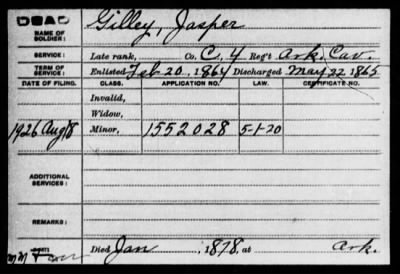 Gilley, Jasper
NAME OF SOLDIER:
SERVICE: Late rank, Co. C, 4 Reg't Ark. Cav.
TERM OF SERVICE: Enlisted Feb 20, 1864 Discharged May 22 1865
DATE OF FILING. CLASS. APPLICATION NO. LAW. CERTIFICATE NO.
Invalid,
Widow,
1926 Aug 18 Minor, 1552028 5-1-20
ADDITIONAL SERVICES:
REMARKS:
Died Jan , 1878, at Ark.